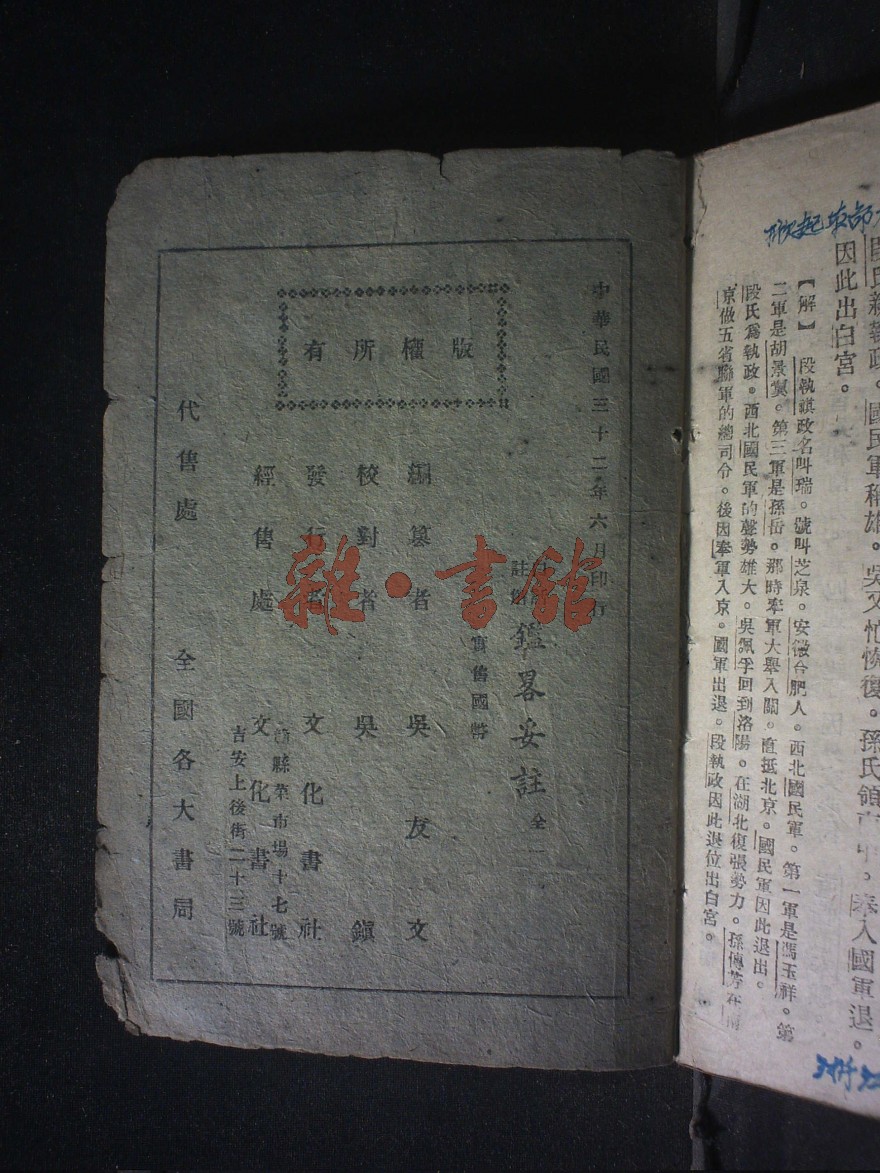 因此出白宮。
【解】　段執祺政名叫瑞。號叫芝泉。安徽合肥人。西北國民軍。第一軍是馮玉祥。第
二軍是胡景翼。第三軍是孫岳。那時奉軍大舉入關。直抵北京。國民軍因此退出。
段氏爲執政。西北國民軍的聲勢雄大。吳佩孚回到洛陽。在湖北復張勢力。孫傳芳在
京做五省聯軍的總司令。後因奉軍入京。國軍出退。段執政因此退位出白宮。
中華民國三十二年六月印行
鑑畧妥註 全一
實售國幣
版權所有
編纂者 吳友文
校對者 吳鎭
發行者 文化書社
縣草市場十七號
經售處 文化書社
吉安上後街二十三號
代售處 全國各大書局
雜·書館